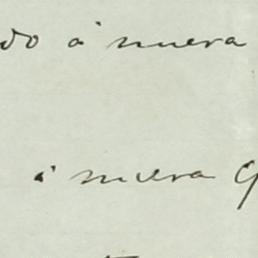 do á nueva
á nueva